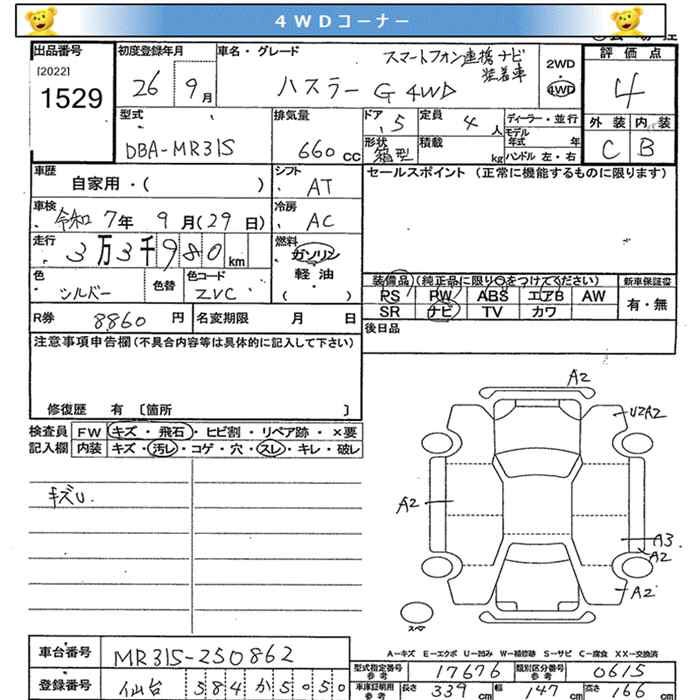 4WDコーナー
出品番号
[2022]
1529
初度登録年月
26 9月
車名・グレード
スマートフォン連携ナビ
装着車
ハスラー G 4WD
2WD
・
4WD
評価点
4
外装 内装
C B
型式
DBA-MR31S
排気量
660 cc
ドア 5
定員 4 人
形状 箱型
積載 kg
ディーラー・並行
モデル
年式 年
ハンドル 左・右
車歴
自家用・( )
シフト
AT
セールスポイント (正常に機能するものに限ります)
車検
令和 7年 9月(29日)
冷房
AC
走行
3万3千980km
燃料
ガソリン
軽油
( )
色
シルバー
色替
色コード
ZVC
装備品 (純正品に限り○をつけてください)
新車保証書
PS PW ABS エアB AW
有・無
SR ナビ TV カワ
R券 8860 円
名変期限 月 日
後日品
注意事項申告欄(不具合内容等は具体的に記入して下さい)
修復歴 有 〔箇所 〕
検査員
記入欄
FW キズ・飛石・ヒビ割・リペア跡・×要
内装 キズ・汚レ・コゲ・穴・スレ・キレ・破レ
キズU.
A2
U2A2
A2
A3
A2
A2
スペア
A-キズ E-エクボ U-凹み W-補修跡 S-サビ C-腐食 XX-交換済
車台番号
MR31S-250862
登録番号
仙台 584 か 5050
型式指定番号
参考
17676
類別区分番号
参考
0615
車庫証明用
参考
長さ 339 cm
幅 147 cm
高さ 166 cm